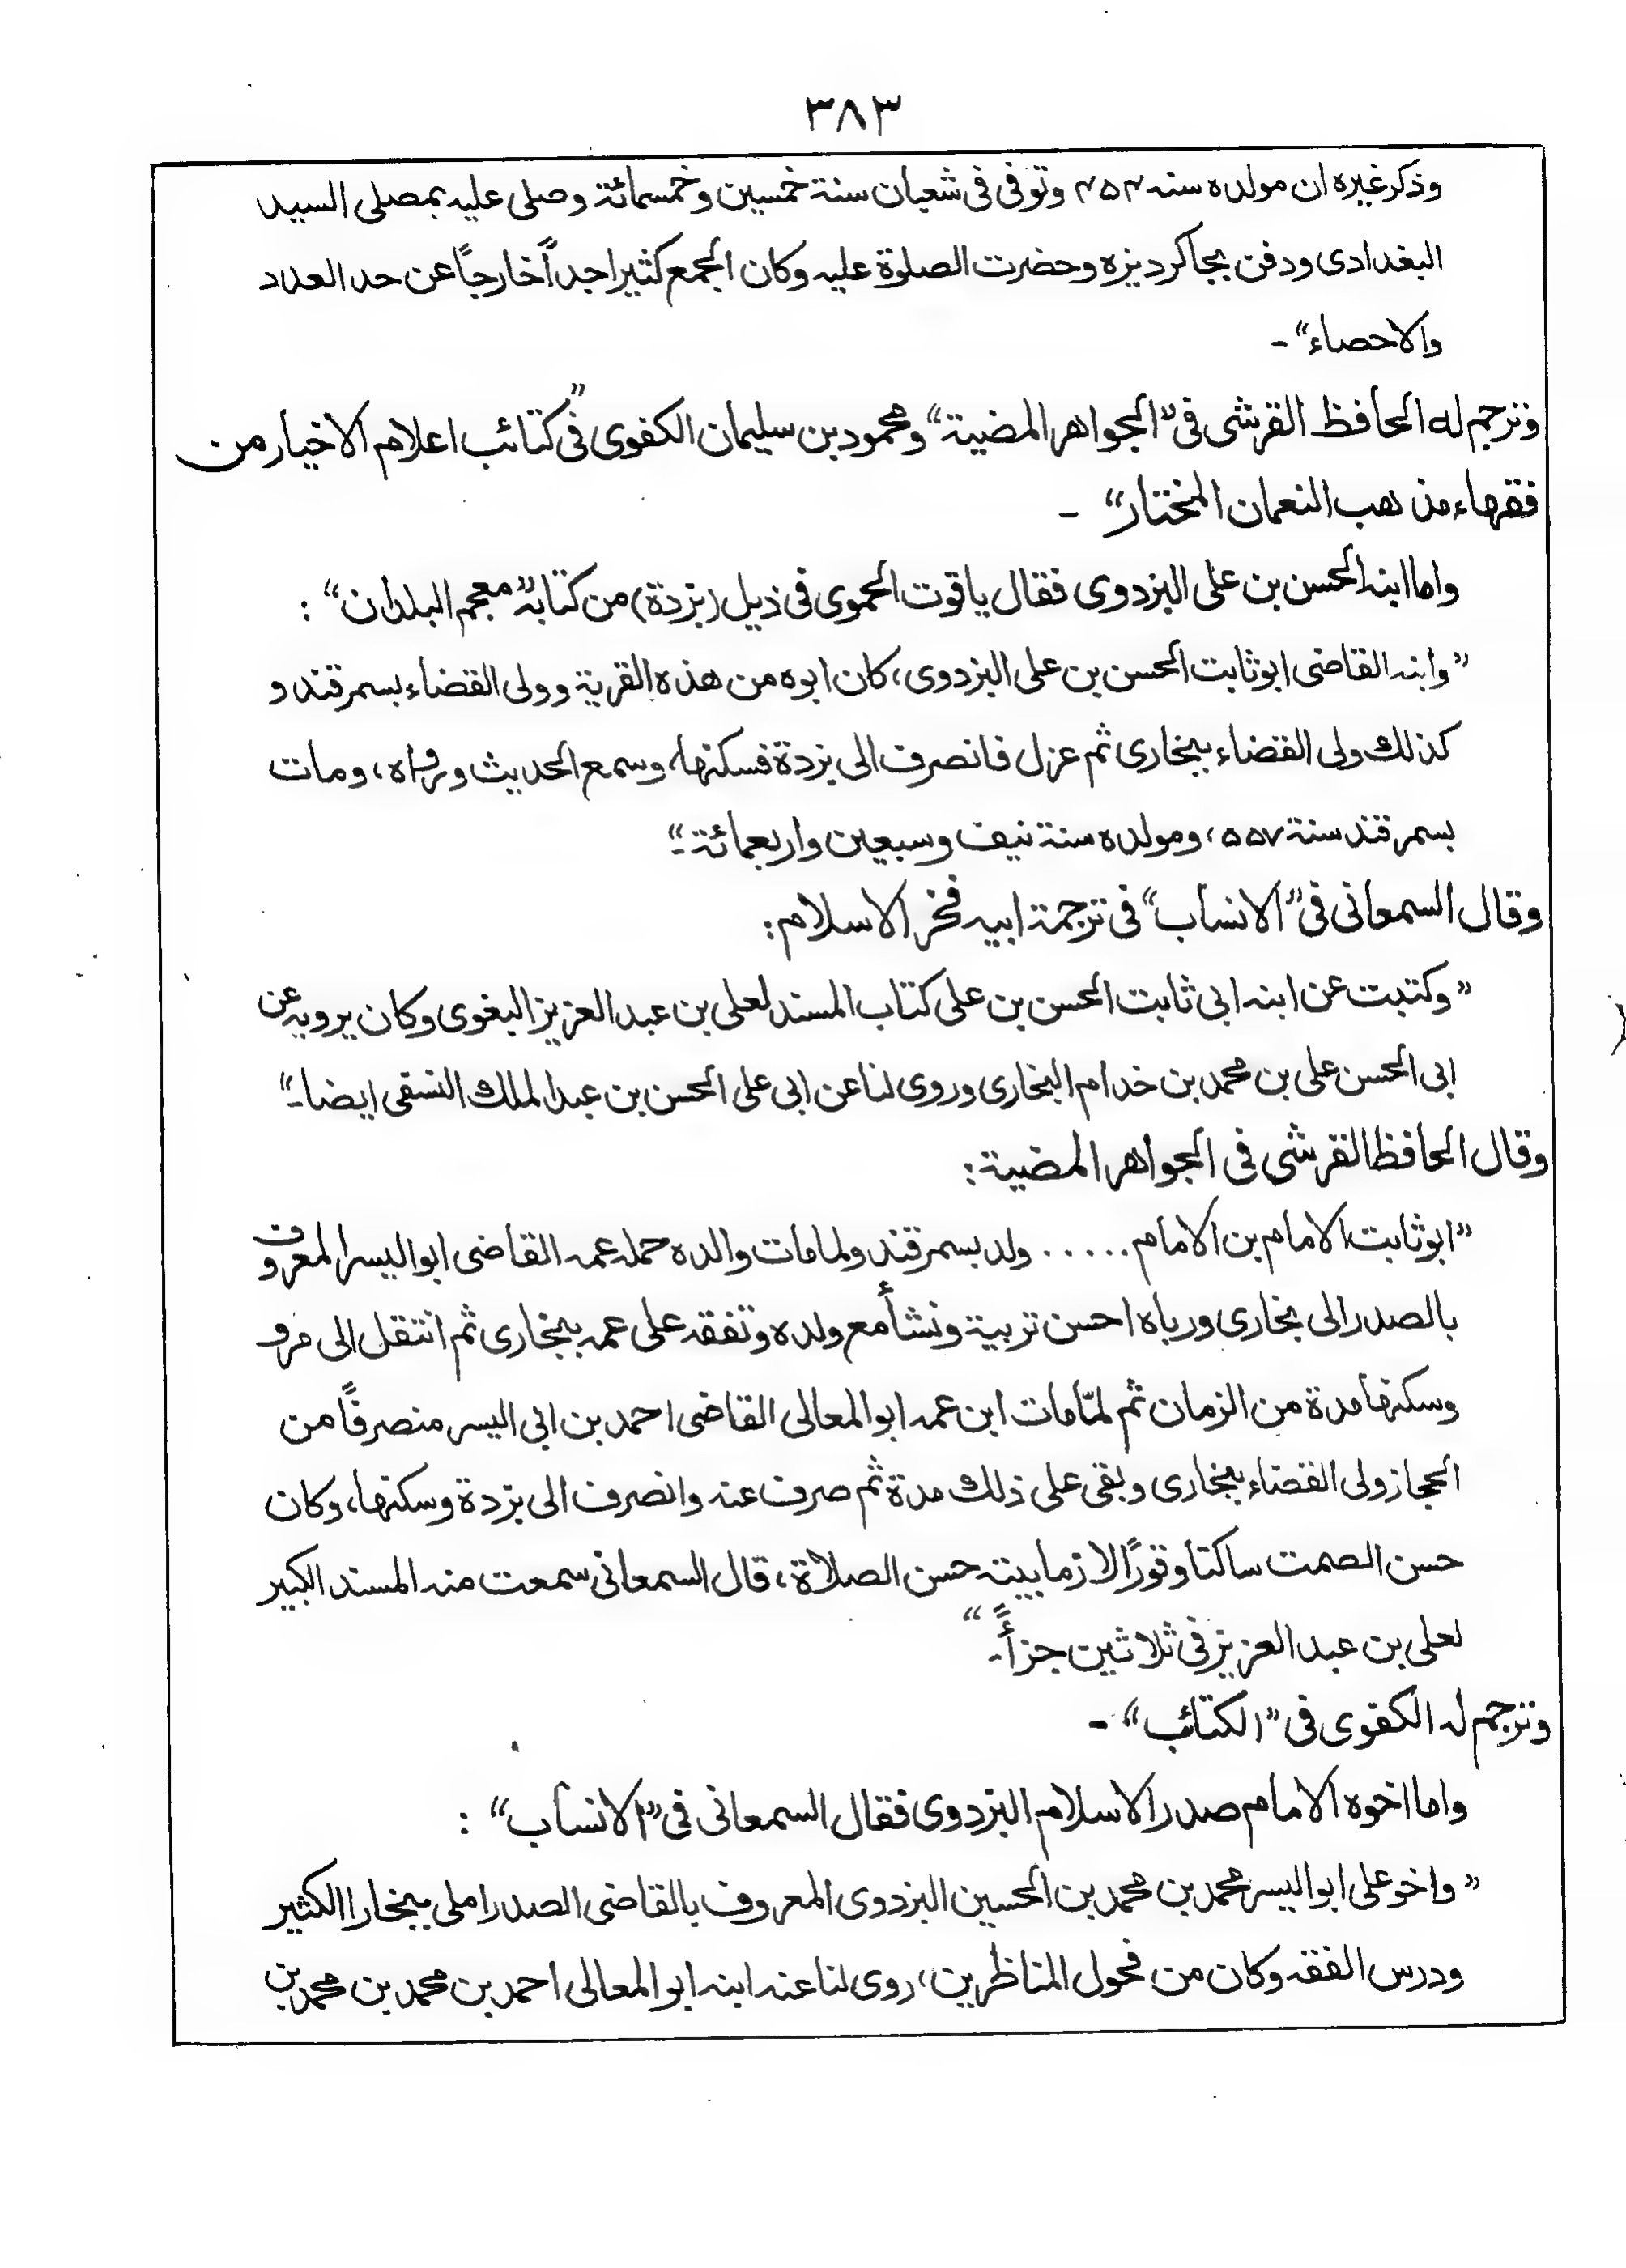 ٣٨٣
وذكر غيره ان مولده سنه ٤٥٤ وتوفى فى شعبان سنة خمسين وخمسمائة وصلى عليه بمصلى السيد
البغدادى ودفن بجاكرديزه وحضرت الصلوة عليه وكان الجمع كثيرا جداً خارجاً عن حد العدد
والاحصاء" ـ
وترجم له الحافظ القرشى فى "الجواهر المضية" ومحمود بن سليمان الكفوى فى "كتائب اعلام الاخيار من
فقهاء مذهب النعمان المختار" ـ
واما ابنه الحسن بن على البزدوى فقال ياقوت الحموى فى ذيل (بزدة) من كتابه "معجم البلدان" :
"وابنه القاضى ابو ثابت الحسن بن على البزدوى، كان ابوه من هذه القرية وولى القضاء بسمرقند و
كذلك ولى القضاء ببخارى ثم عزل فانصرف الى بزدة فسكنها، وسمع الحديث ورواه، ومات
بسمرقند سنة ٥٥٧، ومولده سنة نيف وسبعين واربعمائة ـ"
وقال السمعانى فى "الانساب" فى ترجمة ابيه فخر الاسلام:
"وكتبت عن ابنه ابى ثابت الحسن بن على كتاب المسند لعلى بن عبد العزيز البغوى وكان يرويه عن
ابى الحسن على بن محمد بن خدام البخارى وروى لنا عن ابى على الحسن بن عبد الملك النسقى ايضا ـ"
وقال الحافظ القرشى فى الجواهر المضية:
"ابو ثابت الامام بن الامام ..... ولد بسمرقند ولما مات والده حمله عمه القاضى ابو اليسر المعروف
بالصدر الى بخارى ورباه احسن تربية ونشأ مع ولده وتفقه على عمه ببخارى ثم انتقل الى مرو
وسكنها مدة من الزمان ثم لمّا مات ابن عمه ابو المعالى القاضى احمد بن ابى اليسر منصرفاً من
الحجاز ولى القضاء ببخارى وبقى على ذلك مدة ثم صرف عنه وانصرف الى بزدة وسكنها، وكان
حسن الصمت ساكتا وقورًا لازما بيته حسن الصلاة، قال السمعانى سمعت منه المسند الكبير
لعلى بن عبد العزيز فى ثلاثين جزأً ـ"
وترجم له الكفوى فى "الكتائب" ـ
واما اخوه الامام صدر الاسلام البزدوى فقال السمعانى فى "الانساب" :
"واخو على ابو اليسر محمد بن محمد بن الحسين البزدوى المعروف بالقاضى الصدر املى ببخارا الكثير
ودرس الفقه وكان من فحول المناظرين، روى لنا عنه ابنه ابو المعالى احمد بن محمد بن محمد بن